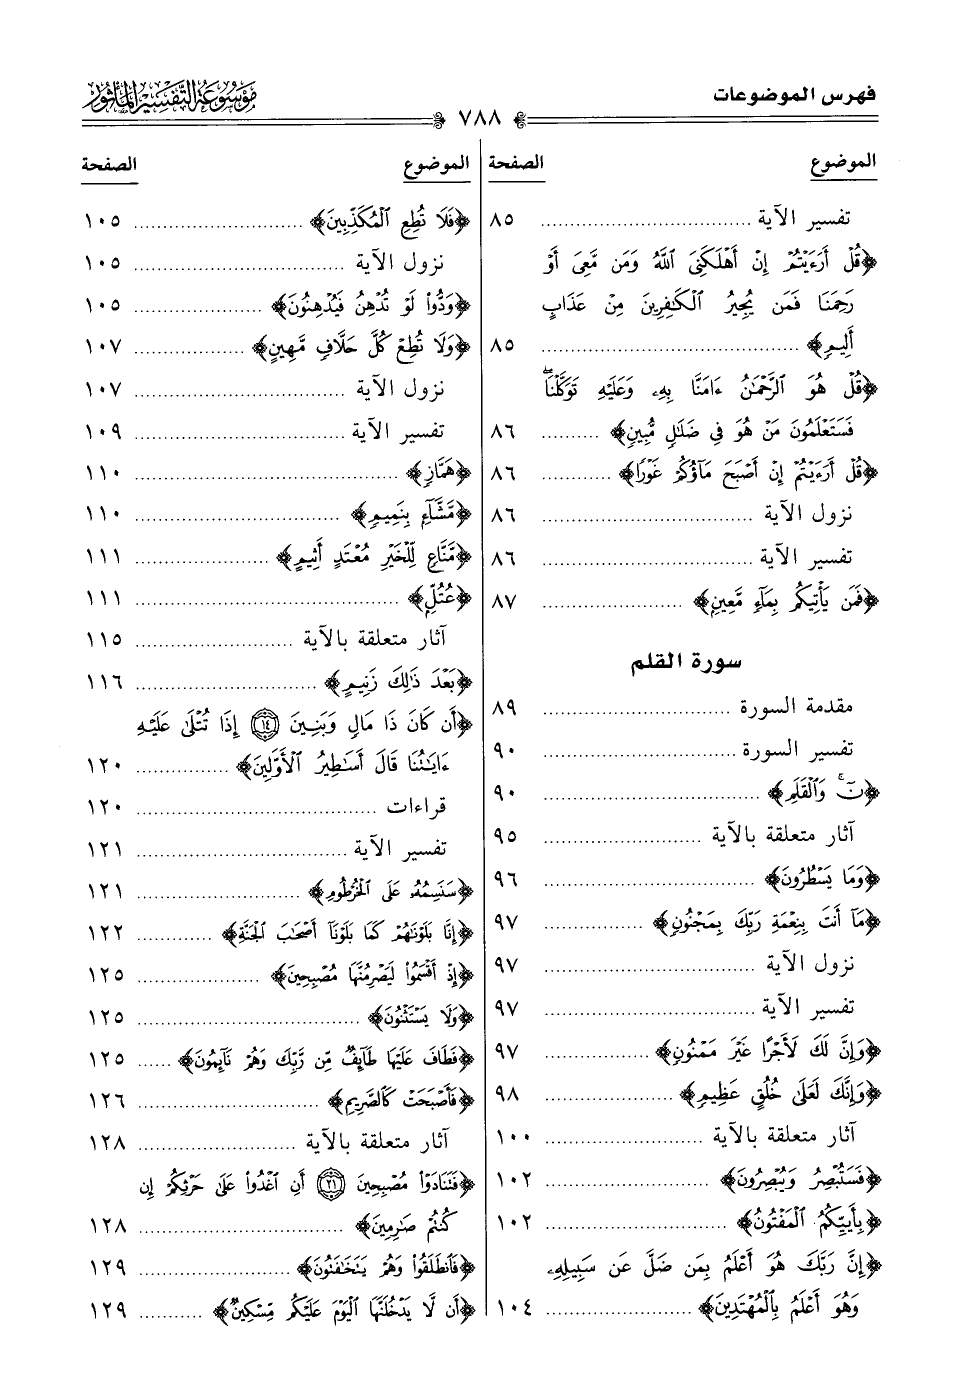 فهرس الموضوعات
٧٨٨
موسوعة التفسير المأثور
الموضوع الصفحة
تفسير الآية ........ ٨٥
﴿قُلْ أَرَءَيْتُمْ إِنْ أَهْلَكَنِيَ ٱللَّهُ وَمَن مَّعِيَ أَوْ
رَحِمَنَا فَمَن يُجِيرُ ٱلْكَٰفِرِينَ مِنْ عَذَابٍ
أَلِيمٍ﴾ ........ ٨٥
﴿قُلْ هُوَ ٱلرَّحْمَٰنُ ءَامَنَّا بِهِۦ وَعَلَيْهِ تَوَكَّلْنَاۖ
فَسَتَعْلَمُونَ مَنْ هُوَ فِي ضَلَٰلٍ مُّبِينٍ﴾ ........ ٨٦
﴿قُلْ أَرَءَيْتُمْ إِنْ أَصْبَحَ مَآؤُكُمْ غَوْرًا﴾ ........ ٨٦
نزول الآية ........ ٨٦
تفسير الآية ........ ٨٦
﴿فَمَن يَأْتِيكُم بِمَآءٍ مَّعِينٍ﴾ ........ ٨٧
سورة القلم
مقدمة السورة ........ ٨٩
تفسير السورة ........ ٩٠
﴿نٓۚ وَٱلْقَلَمِ﴾ ........ ٩٠
آثار متعلقة بالآية ........ ٩٥
﴿وَمَا يَسْطُرُونَ﴾ ........ ٩٦
﴿مَآ أَنتَ بِنِعْمَةِ رَبِّكَ بِمَجْنُونٍ﴾ ........ ٩٧
نزول الآية ........ ٩٧
تفسير الآية ........ ٩٧
﴿وَإِنَّ لَكَ لَأَجْرًا غَيْرَ مَمْنُونٍ﴾ ........ ٩٧
﴿وَإِنَّكَ لَعَلَىٰ خُلُقٍ عَظِيمٍ﴾ ........ ٩٨
آثار متعلقة بالآية ........ ١٠٠
﴿فَسَتُبْصِرُ وَيُبْصِرُونَ﴾ ........ ١٠٢
﴿بِأَييِّكُمُ ٱلْمَفْتُونُ﴾ ........ ١٠٢
﴿إِنَّ رَبَّكَ هُوَ أَعْلَمُ بِمَن ضَلَّ عَن سَبِيلِهِۦ
وَهُوَ أَعْلَمُ بِٱلْمُهْتَدِينَ﴾ ........ ١٠٤
الموضوع الصفحة
﴿فَلَا تُطِعِ ٱلْمُكَذِّبِينَ﴾ ........ ١٠٥
نزول الآية ........ ١٠٥
﴿وَدُّوا۟ لَوْ تُدْهِنُ فَيُدْهِنُونَ﴾ ........ ١٠٥
﴿وَلَا تُطِعْ كُلَّ حَلَّافٍ مَّهِينٍ﴾ ........ ١٠٧
نزول الآية ........ ١٠٧
تفسير الآية ........ ١٠٩
﴿هَمَّازٍ﴾ ........ ١١٠
﴿مَّشَّآءٍۭ بِنَمِيمٍ﴾ ........ ١١٠
﴿مَّنَّاعٍ لِّلْخَيْرِ مُعْتَدٍ أَثِيمٍ﴾ ........ ١١١
﴿عُتُلٍّۭ﴾ ........ ١١١
آثار متعلقة بالآية ........ ١١٥
﴿بَعْدَ ذَٰلِكَ زَنِيمٍ﴾ ........ ١١٦
﴿أَن كَانَ ذَا مَالٍ وَبَنِينَ ١٤ إِذَا تُتْلَىٰ عَلَيْهِ
ءَايَٰتُنَا قَالَ أَسَٰطِيرُ ٱلْأَوَّلِينَ﴾ ........ ١٢٠
قراءات ........ ١٢٠
تفسير الآية ........ ١٢١
﴿سَنَسِمُهُۥ عَلَى ٱلْخُرْطُومِ﴾ ........ ١٢١
﴿إِنَّا بَلَوْنَٰهُمْ كَمَا بَلَوْنَآ أَصْحَٰبَ ٱلْجَنَّةِ﴾ ........ ١٢٢
﴿إِذْ أَقْسَمُوا۟ لَيَصْرِمُنَّهَا مُصْبِحِينَ﴾ ........ ١٢٥
﴿وَلَا يَسْتَثْنُونَ﴾ ........ ١٢٥
﴿فَطَافَ عَلَيْهَا طَآئِفٌ مِّن رَّبِّكَ وَهُمْ نَآئِمُونَ﴾ ........ ١٢٥
﴿فَأَصْبَحَتْ كَٱلصَّرِيمِ﴾ ........ ١٢٦
آثار متعلقة بالآية ........ ١٢٨
﴿فَتَنَادَوْا۟ مُصْبِحِينَ ٢١ أَنِ ٱغْدُوا۟ عَلَىٰ حَرْثِكُمْ إِن
كُنتُمْ صَٰرِمِينَ﴾ ........ ١٢٨
﴿فَٱنطَلَقُوا۟ وَهُمْ يَتَخَٰفَتُونَ﴾ ........ ١٢٩
﴿أَن لَّا يَدْخُلَنَّهَا ٱلْيَوْمَ عَلَيْكُم مِّسْكِينٌ﴾ ........ ١٢٩